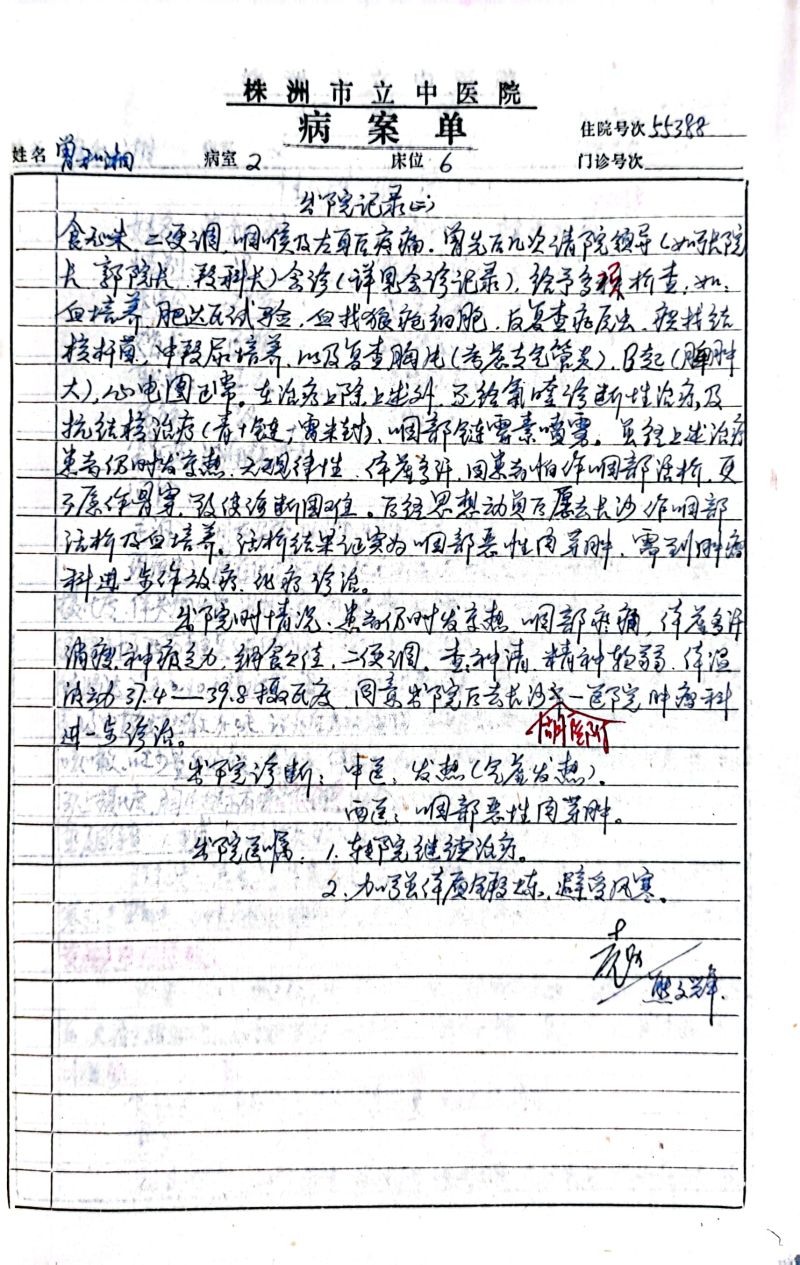 株洲市立中医院
病案单
住院号次 55388
姓名 曾和湘 病室 2 床位 6 门诊号次
出院记录(二)
食知味 二便调 咽喉及左耳后疼痛。曾先后几次请院领导(如张院
长 郭院长 段科长)会诊(详见会诊记录),给予多项析查,如:
血培养,肥达氏试验,血找狼疮细胞,反复查疟原虫,痰找结
核析菌,中段尿培养,以及复查胸片(考虑支气管炎),B超(脾肿
大),心电图正常。在治疗上除上述外,还给氯喹诊断性治疗,及
抗结核治疗(青+链+雷米封),咽部链霉素喷雾。虽经上述治疗
患者仍时发高热,无规律性,体虚多汗,因患者怕作咽部活析,更
不愿作骨穿,致使诊断困难。后经思想动员后愿去长沙作咽部
活析及血培养。活析结果证实为咽部恶性肉芽肿,需到肿瘤
科进一步作放疗、化疗诊治。
出院时情况:患者仍时发高热,咽部疼痛,体虚多汗
消瘦,神疲乏力,纳食欠佳,二便调。查:神清,精神软弱,体温
波动37.4°—39.8摄氏度,同意出院后去长沙 一医院肿瘤科
进一步诊治。
出院诊断:中医:发热(气虚发热)。
西医:咽部恶性肉芽肿。
出院医嘱:1.转院继续治疗。
2.加强体质锻炼,避受风寒。